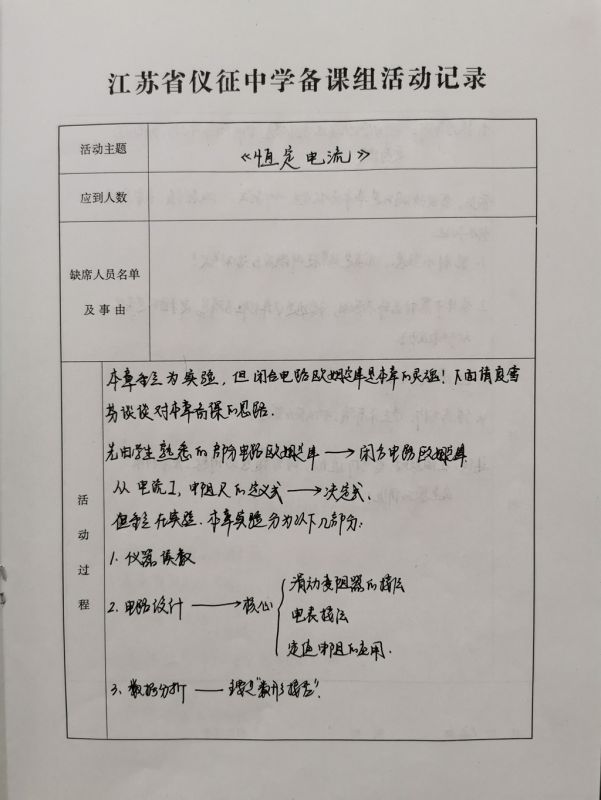 江苏省仪征中学备课组活动记录
活动主题
《恒定电流》
应到人数
缺席人员名单
及事由
活动过程
本章重点为实验，但闭合电路欧姆定律是本章的灵魂！下面请夏雪
芬谈谈对本章备课的思路.
先由学生熟悉的部分电路欧姆定律 → 闭合电路欧姆定律
从电流I，电阻R的定义式 → 决定式.
但重点在实验. 本章实验分为以下几部分:
1. 仪器读数
2. 电路设计 → 核心
滑动变阻器的接法
电表接法
定值电阻的应用.
3. 数据分析 —— 主要是"数形结合".